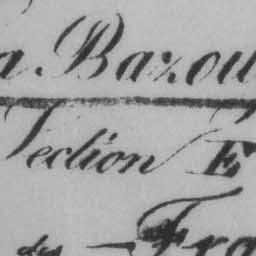 a. Bazou
Section E
des — Fra